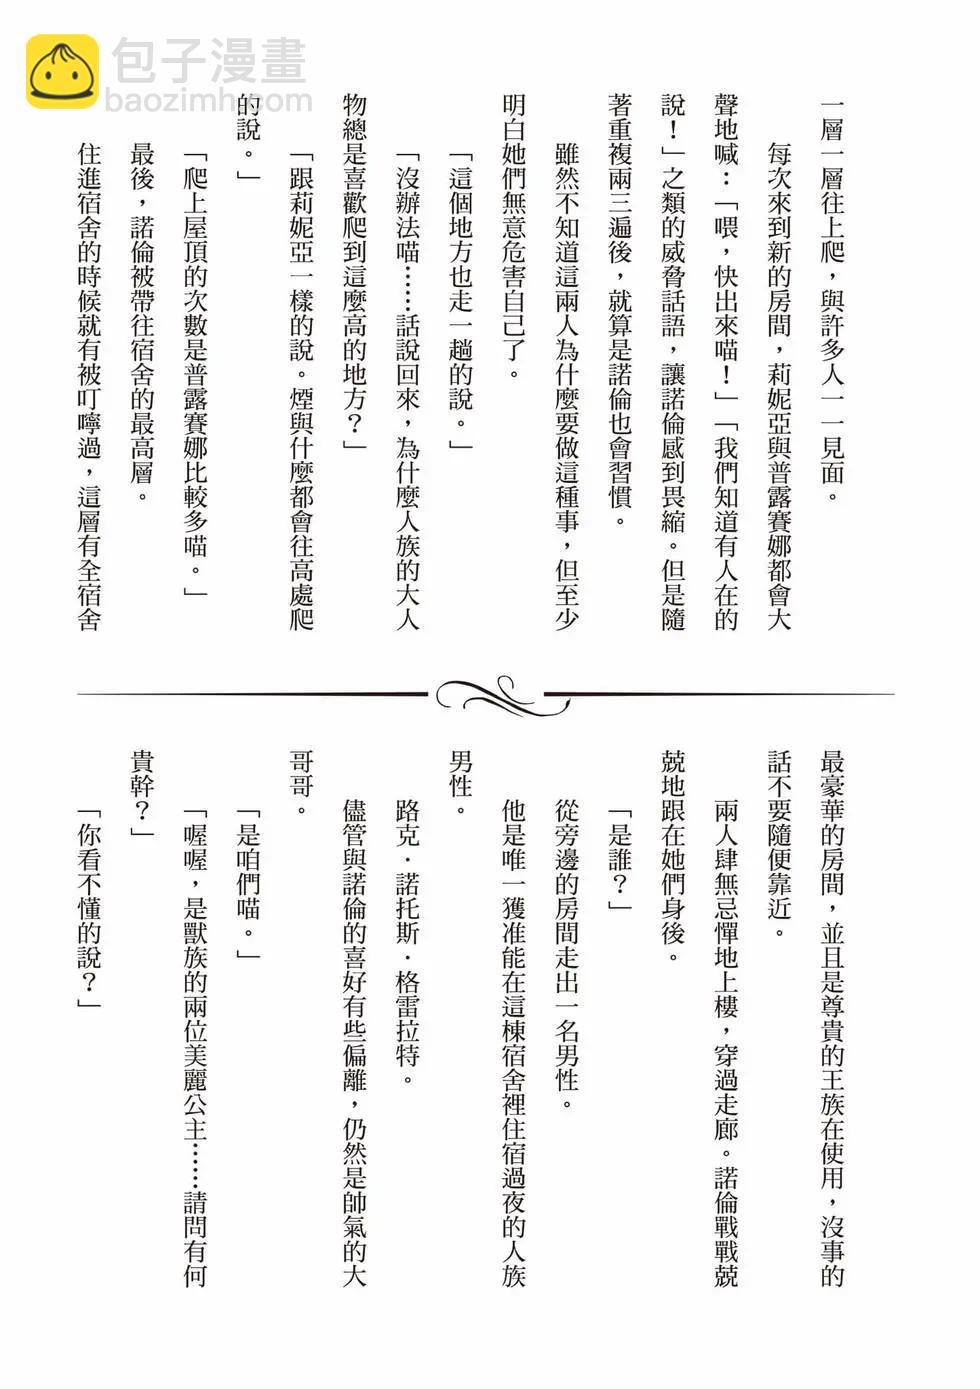 包子漫畫
baozimh.com
一層一層往上爬，與許多人一一見面。
每次來到新的房間，莉妮亞與普露賽娜都會大
聲地喊：「喂，快出來喵！」「我們知道有人在的
說！」之類的威脅話語，讓諾倫感到畏縮。但是隨
著重複兩三遍後，就算是諾倫也會習慣。
雖然不知道這兩人為什麼要做這種事，但至少
明白她們無意危害自己了。
「這個地方也走一趟的說。」
「沒辦法喵……話說回來，為什麼人族的大人
物總是喜歡爬到這麼高的地方？」
「跟莉妮亞一樣的說。煙與什麼都會往高處爬
的說。」
「爬上屋頂的次數是普露賽娜比較多喵。」
最後，諾倫被帶往宿舍的最高層。
住進宿舍的時候就有被叮嚀過，這層有全宿舍
最豪華的房間，並且是尊貴的王族在使用，沒事的
話不要隨便靠近。
兩人肆無忌憚地上樓，穿過走廊。諾倫戰戰兢
兢地跟在她們身後。
「是誰？」
從旁邊的房間走出一名男性。
他是唯一獲准能在這棟宿舍裡住宿過夜的人族
男性。
路克．諾托斯．格雷拉特。
儘管與諾倫的喜好有些偏離，仍然是帥氣的大
哥哥。
「是咱們喵。」
「喔喔，是獸族的兩位美麗公主……請問有何
貴幹？」
「你看不懂的說？」